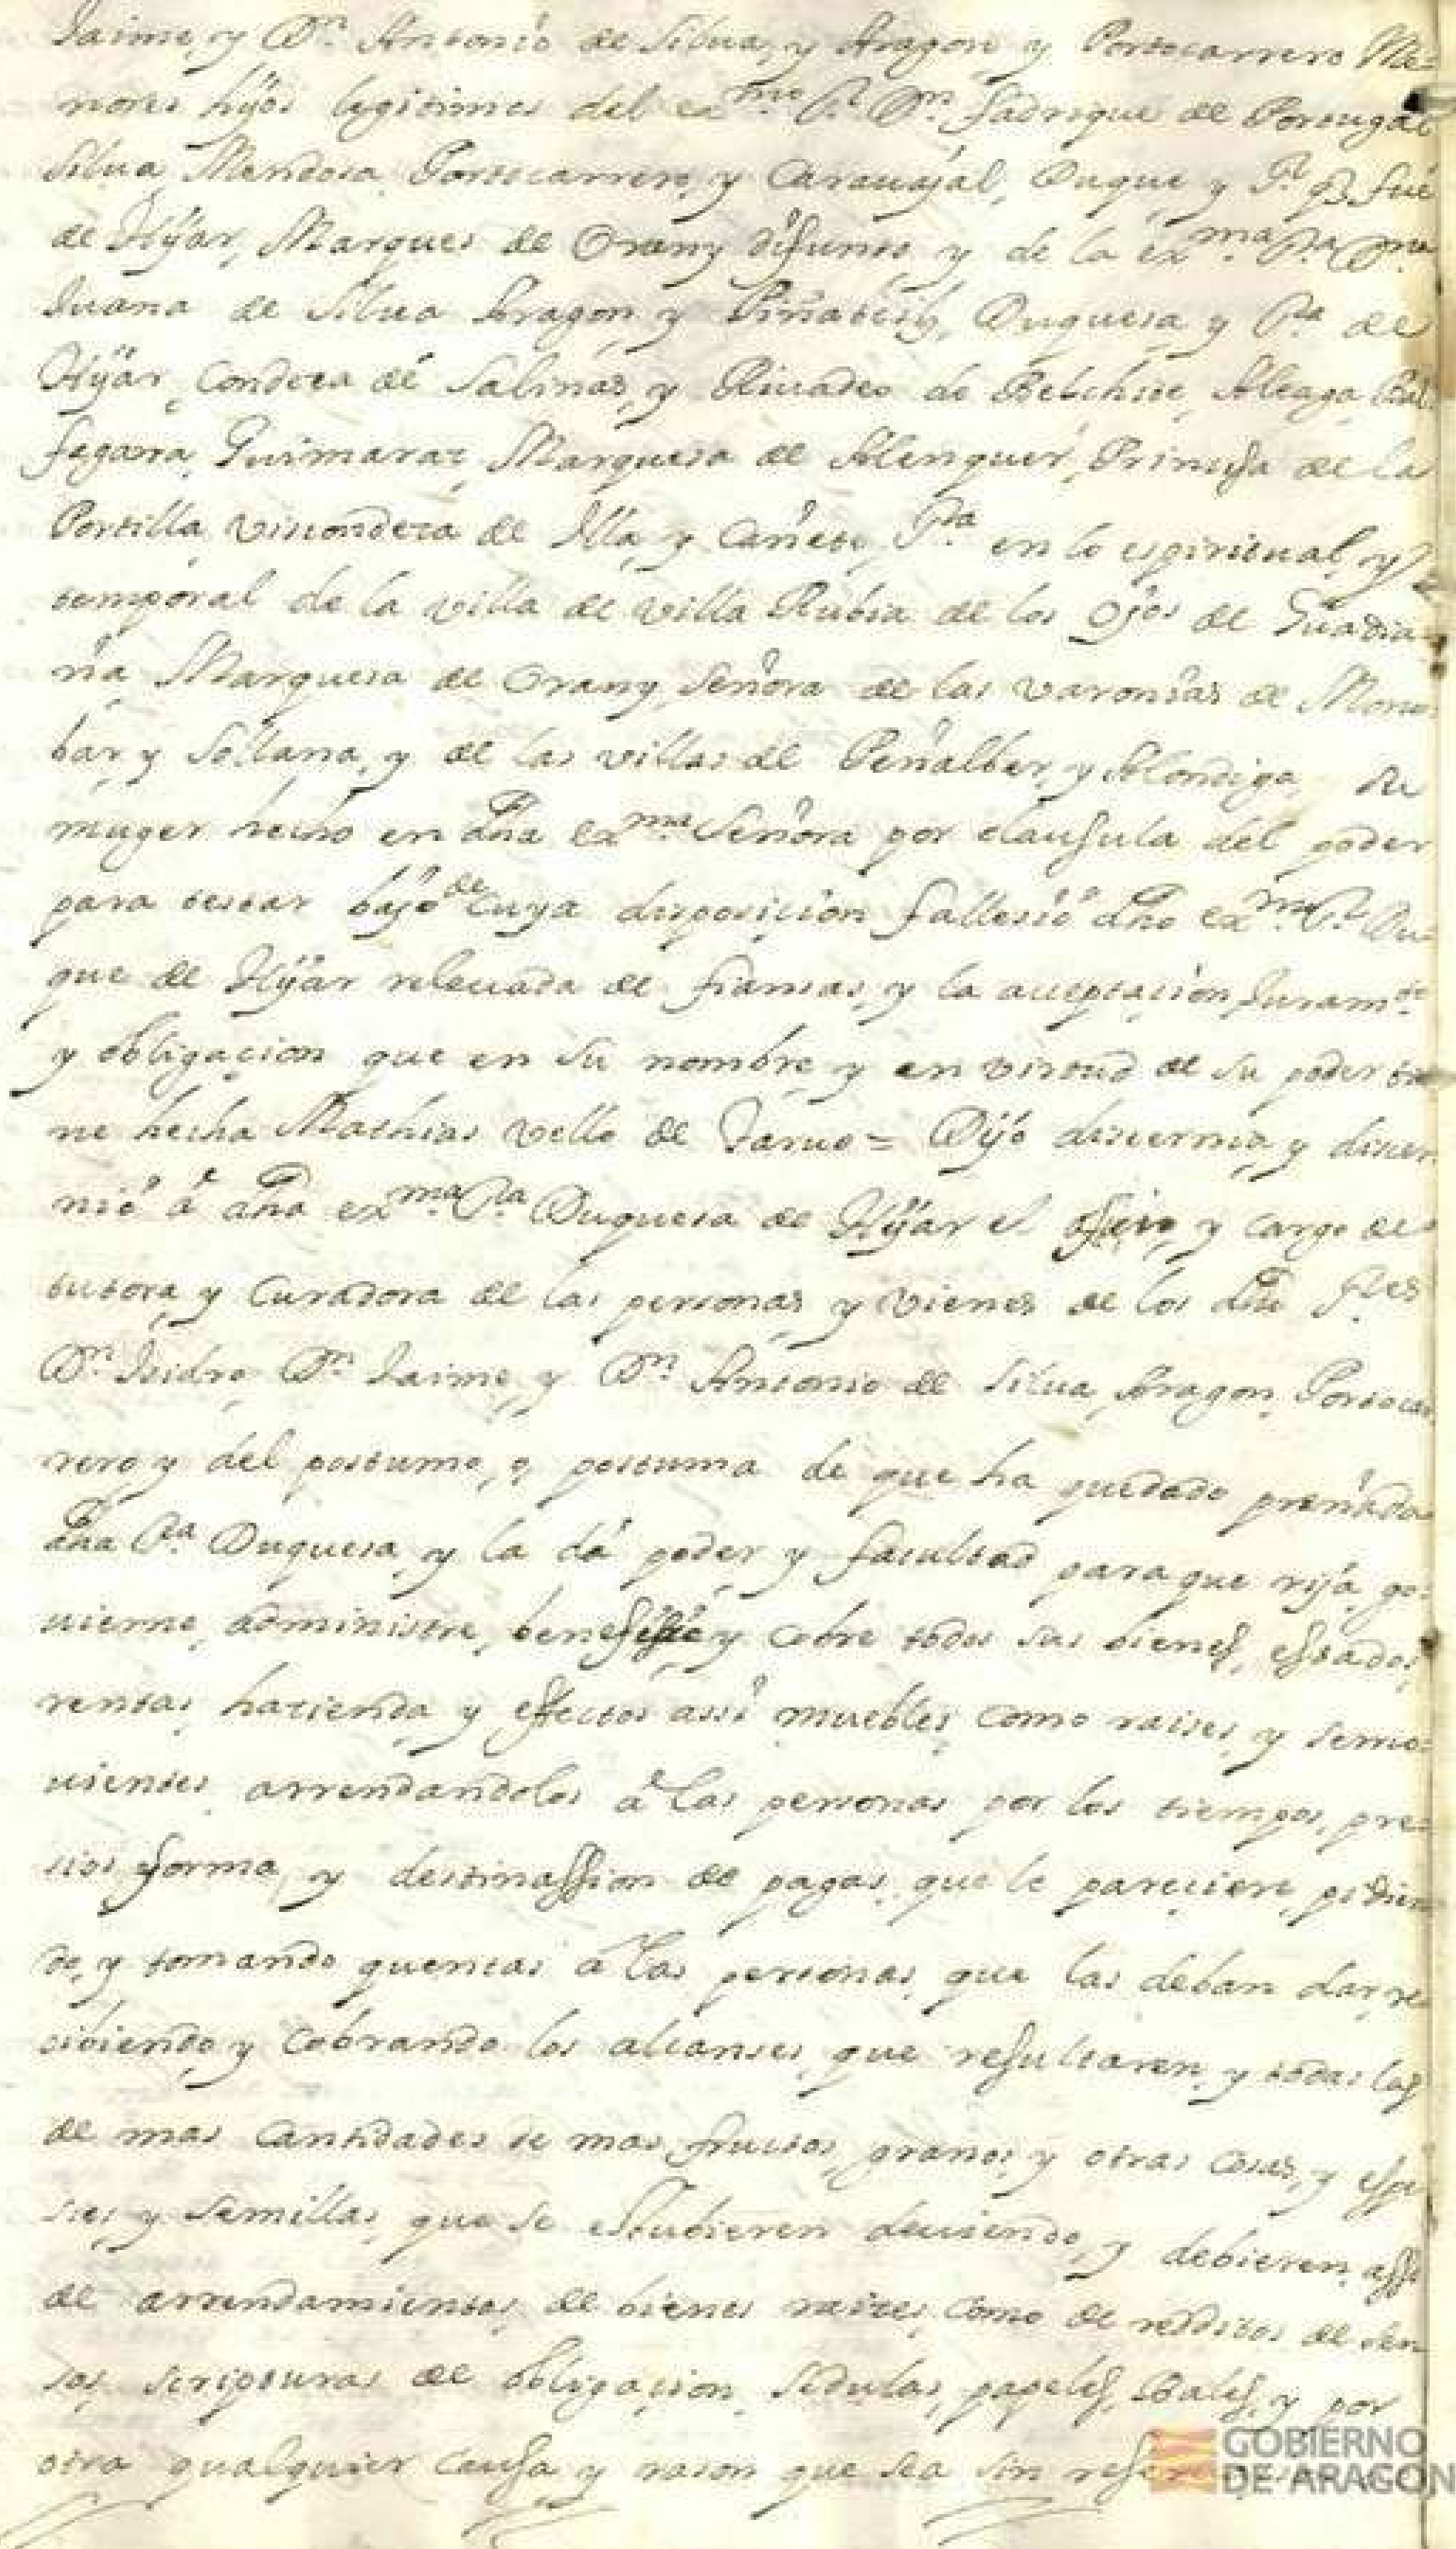 Jaime, y Dn. Antonio de Silua, y Aragon y Portocarrero Me=
nores hijos legitimos del exmo. Sr. Dn. fadrique de Portugal
Silua, Mendoza Portocarrero, y Carauajal, Duque y Sr. q. fue
de Hijar, Marques de Orany difunto y de la exma. Sra. Dna.
Juana de Silua Aragon, y Piñateli, Duquesa y Sra. de
Hijar, Condeza de Salinas, y Riuadeo de Belchite, Aliaga Bal
fagona, Guimaraz, Marquesa de Alenquer, Princesa de la
Portilla, viscondeza de Illa, y Cañete, Sra. en lo espiritual, y
temporal de la villa de villa Rubia de los Ojos de Guadia
na Marquesa de Orany, Señora de las varonias de Mono
bar, y Sollana, y de las villas de Peñalber, y Alondiga, su
muger hecho en dha exma. Señora por clausula del poder
para testar bajo de cuya disposicion fallesio dho exmo. Sr. Du
que de Hijar releuada de fiansas, y la aceptacion, Juramto.
y obligacion que en su nombre, y en virtud de su poder tie
ne hecha Mathias vello de = Dijo discernia, y discer
nio á dha exma. Sra. Duquesa de Hijar el ofisio, y cargo de
tutora, y Curadora de las personas, y vienes de los dhos sres.
Dn. Isidro, Dn. Jaime, y Dn. Antonio de Silua, Aragon, Portocar
rero, y del postumo, o postuma de que ha quedado preñada
dha Sra. Duquesa, y la dá poder y facultad para que rija, go
uierne, administre, benefisie y cobre todos sus bienes, estados,
rentas, hazienda y effectos assi muebles, como raises, y semo
uientes, arrendandolos á las personas por los tiempos, pre
sios forma, y destinassion de pagas, que le pareciere, pidien
do, y tomando quentas á las personas, que las deban dar, re
cibiendo, y Cobrando los alcanses, que resultaren, y todas las
de mas Cantidades de mas, fructos, granos, y otras cosas, y espe
sies, y semillas, que se estubieren deuiendo, y debieren, assi
de arrendamientos, de bienes raizes, como de redditos de sen
sos, scripturas de obligacion, sedulas, papeles, bales, y por
otra qualquier causa, y rason que sea sin
GOBIERNO
DE ARAGON